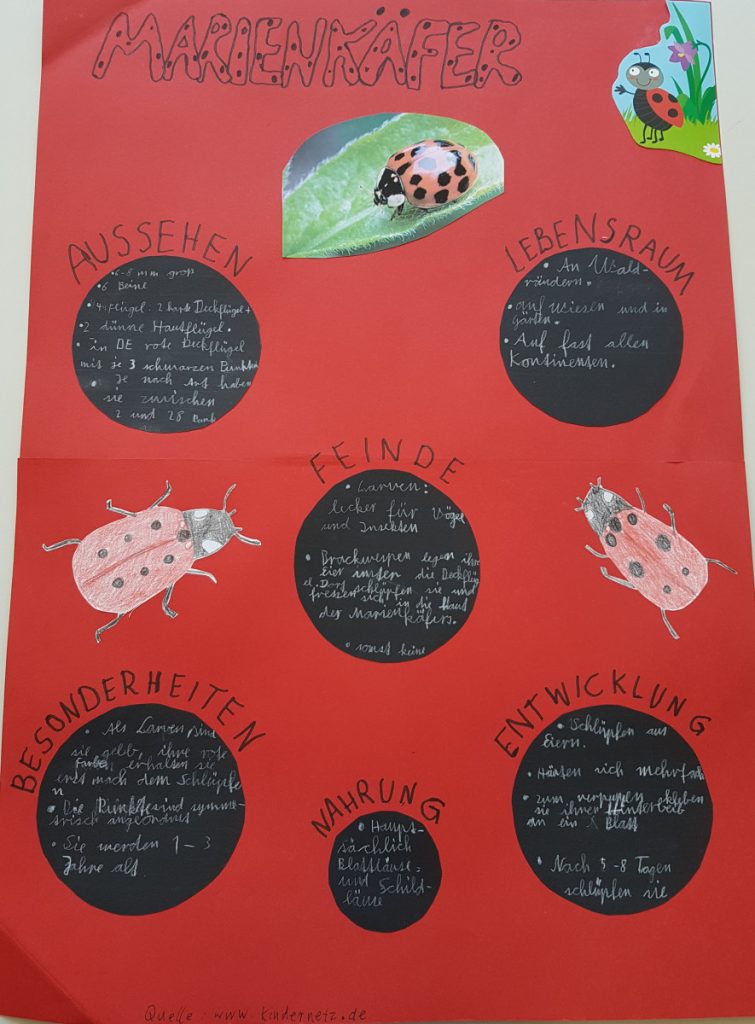 MARIENKÄFER
AUSSEHEN
• 6-8 mm groß
• 6 Beine
• 4 Flügel: 2 harte Deckflügel +
• 2 dünne Hautflügel.
• in DE rote Deckflügel
mit je 3 schwarzen Punkten
• Je nach Art haben
sie zwischen
2 und 28 Punkt
LEBENSRAUM
• An Wald-
rändern.
• auf Wiesen und in
Gärten.
• Auf fast allen
Kontinenten.
FEINDE
• Larven:
lecker für Vögel
und Insekten
• Brackwespen legen ihre
Eier unter die Deckflüg
el. Dort schlüpfen sie und
fressen sich in die Haut
der Marienkäfers.
• sonst keine
BESONDERHEITEN
• Als Larven sind
sie gelb, ihre rote
Farben erhalten sie
erst nach dem Schlüpfe
n
• Die Punkte sind symme-
trisch angeordnet
• Sie werden 1-3
Jahre alt
NAHRUNG
• Haupt-
sächlich
Blattläuse,
und Schild-
läuse
ENTWICKLUNG
• Schlüpfen aus
Eiern.
• Häuten sich mehrfach
• zum verpuppen kleben
sie ihren Hinterleib
an ein Blatt
• Nach 5-8 Tagen
schlüpfen sie
Quelle: www.kindernetz.de